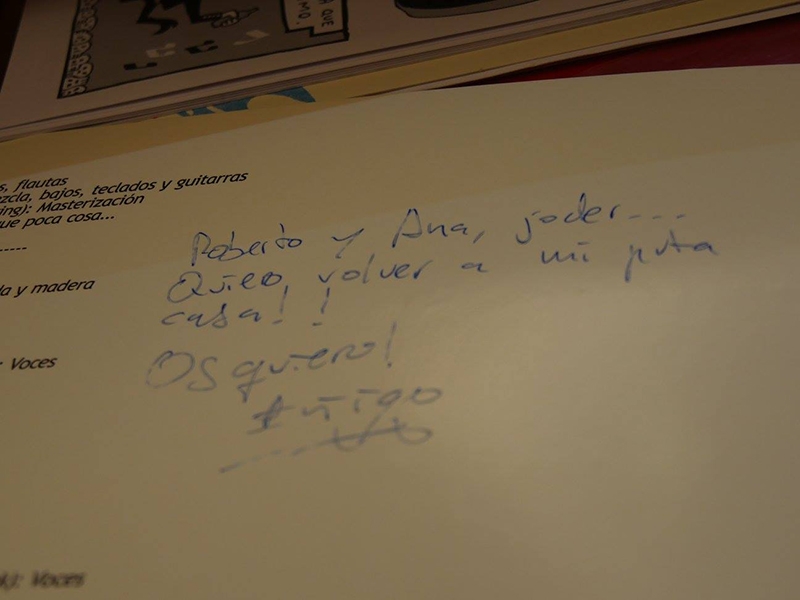 A QUE
MO.
s, flautas
ezcla, bajos, teclados y guitarras
ing): Masterización
ue poca cosa...
-----
la y madera
: Voces
Roberto y Ana, joder...
Quiero volver a mi puta
casa!!
Os quiero!
Iñigo
k): Voces